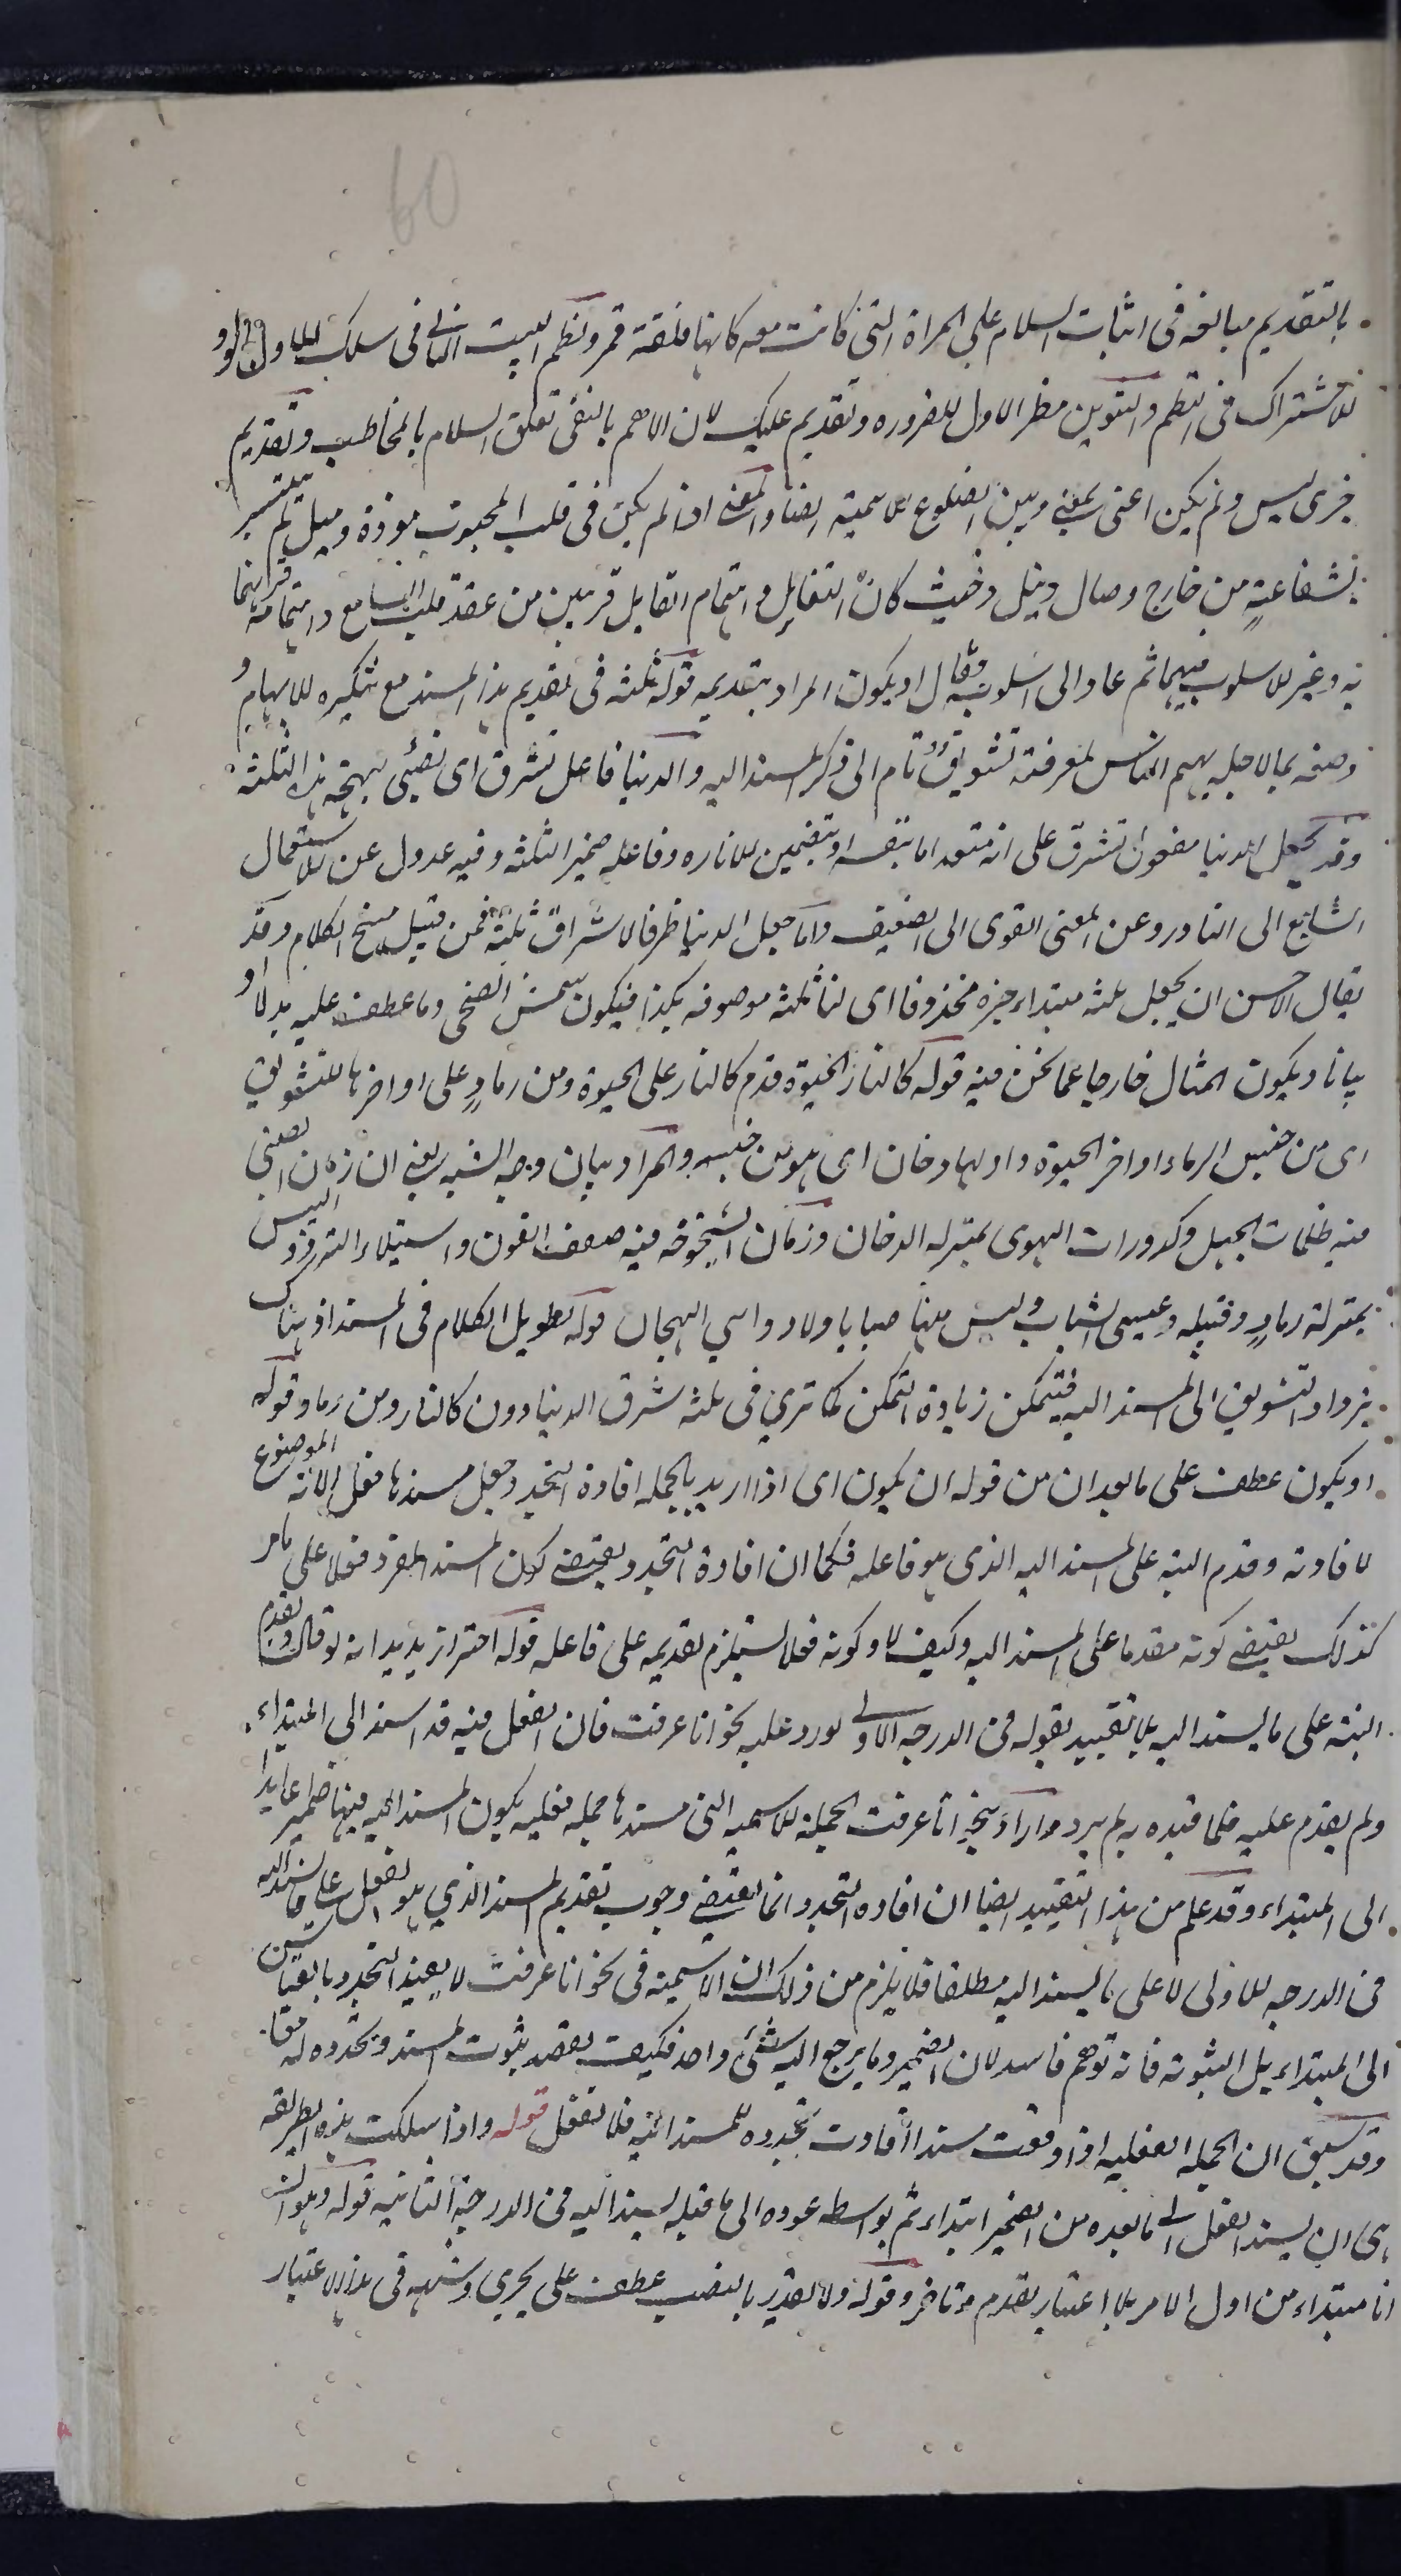 60
بالتقديم مبالغه فى اثبات السلام على المراة التى كانت معه كانها فلقة قمر ونظم البيت الثانى فى سلك الاول
للاشتراك فى النظم والتنوين مطر الاول للضروره وتقديم عليك لان الاهم بالنفى تعلق السلام بالمخاطب وتقديم
خبرى ليس ولم يكن اعنى بمغن وبين الضلوع للاهمية ايضا والمعنى اذا لم يكن فى قلب المحبوب مودة وميل لم يتيسر
بشفاعة من خارج وصال ونيل وحيث كان التفاؤل واهتمام القابل قريبين من عقد قلب السامع واهتمامه
به وغير الاسلوب فيهما ثم عاد الى اسلوبه وقال او يكون المراد بتقديمه قوله ثلثه فى تقديم هذا المسند مع تنكيره للابهام و
وصفه بما لاجله يهم الناس لمعرفته تشويق تام الى ذكر المسند اليه والدنيا فاعل تشرق اى تضيئ ببهجة هذه الثلثة
وقد يجعل الدنيا مفعول تشرق على انه متعد اما بنفسه او بتضمين للاناره وفاعله ضمير الثلثه وفيه عدول عن الاستعمال
الشايع الى النادر وعن المعنى القوى الى الضعيف واما جعل الدنيا ظرفا لاشراق ثلثة فمن قبيل مسخ الكلام وقد
يقال الاحسن ان يجعل ثلثه مبتداء خبره محذوفا اى لنا ثلثه موصوفه بكذا فيكون شمس الضحى وما عطف عليه بدلا او
بيانا ويكون المثال خارجا عما نحن فيه قوله كالنار الحيوة قدم كالنار على الحيوة ومن رماد على اواخرها للتشويق
اى من جنس الرماد اواخر الحيوة واولها دخان اى هو من جنسه والمراد بيان وجه الشبه يعنى ان زمان الصبى
فيه ظلمات الجهل وكدورات الهوى بمنزله الدخان وزمان الشيخوخه فيه ضعف القوى واستيلاء البرد واليبس
بمنزلة رماد وقبيله وعيسى الشباب وليس فيها صبا با ولاد واسى الهجان قوله تطويل الكلام فى المسند اذ هناك
يزداد التشويق الى المسند اليه فيتمكن زيادة التمكن كما ترى فى ثلثه تشرق الدنيا دون كالنار ومن رماد وقوله
او يكون عطف على ما بعد ان من قوله ان يكون اى اذا اريد بالجمله افادة التجدد جعل مسندها فعلا لانه الموضوع
لافادته وقدم البته على المسند اليه الذى هو فاعله فكما ان افادة التجدد يقتضى كون المسند المفرد فعلا على ما مر
كذلك يقتضى كونه مقدما على المسند اليه وكيف لا وكونه فعلا يستلزم تقديمه على فاعله قوله احتراز يريد انه لو قال ويقدم
البته على ما يسند اليه بلا تقييد بقوله فى الدرجه الاولى لورد عليه نحو انا عرفت فان الفعل فيه قد اسند الى المبتداء
ولم يقدم عليه فلما قيده به لم يرد واراد بنحو انا عرفت الجملة الاسميه التى مسندها جمله فعليه يكون المسند اليه فيها ضميرا عايدا
الى المبتداء وقد علم من هذا التقييد ايضا ان افاده التجدد انما يقتضى وجوب تقديم المسند الذى هو الفعل على ما يسند اليه
فى الدرجه الاولى لا على ما يسند اليه مطلقا فلا يلزم من ذلك ان الاسمية فى نحو انا عرفت لا يفيد التجدد بالقياس
الى المبتداء بل الثبوته فانه توهم فاسد لان الضمير وما يرجع اليه شئ واحد فكيف يقصد بثبوت المسند وتجدده له معا
وقد سبق ان الجمله الفعليه اذا وقعت مسندا افادت تجدده للمسند اليه فلا تغفل قوله واذا سلكت هذه الطريقه
اى ان يسند الفعل الى ما بعده من الضمير ابتداء ثم بواسطه عوده الى ما قبله يسند اليه فى الدرجة الثانيه قوله وهو ان
انا مبتداء من اول الامر بلا اعتبار تقدم وتاخر وقوله ولا تقدير بالنصب عطف على يجرى وشبهه فى هذا الاعتبار